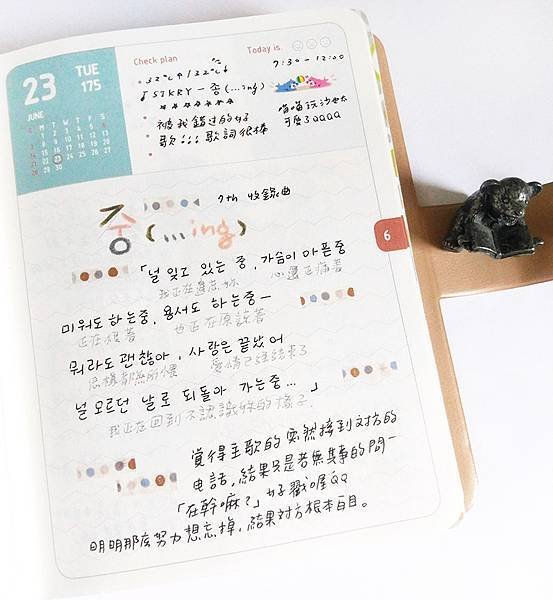 Check plan
Today is
23
TUE
175
JUNE
7:30 - 12:00
32℃↑/32℃↓
♪ SJKRY - 중(...ing)
被我錯過的好
歌!!! 歌詞很棒
可愛QQQQ
7th 收錄曲
중(...ing)
6
「널 잊고 있는 중, 가슴이 아픈 중
我正在遺忘妳 心還正痛著
미워도 하는중, 용서도 하는중ㅡ
正在恨著 也正在原諒著
뭐라도 괜찮아, 사랑은 끝났어
怎樣都無所謂 愛情已經結束了
널 모르던 날로 되돌아 가는중... 」
我正在回到不認識妳的樣子
覺得主歌的突然接到对方的
电话,結果只是若無其事的問一
「在幹嘛?」好戳喔QQ
明明那麼努力想忘掉,結果对方根本白目。